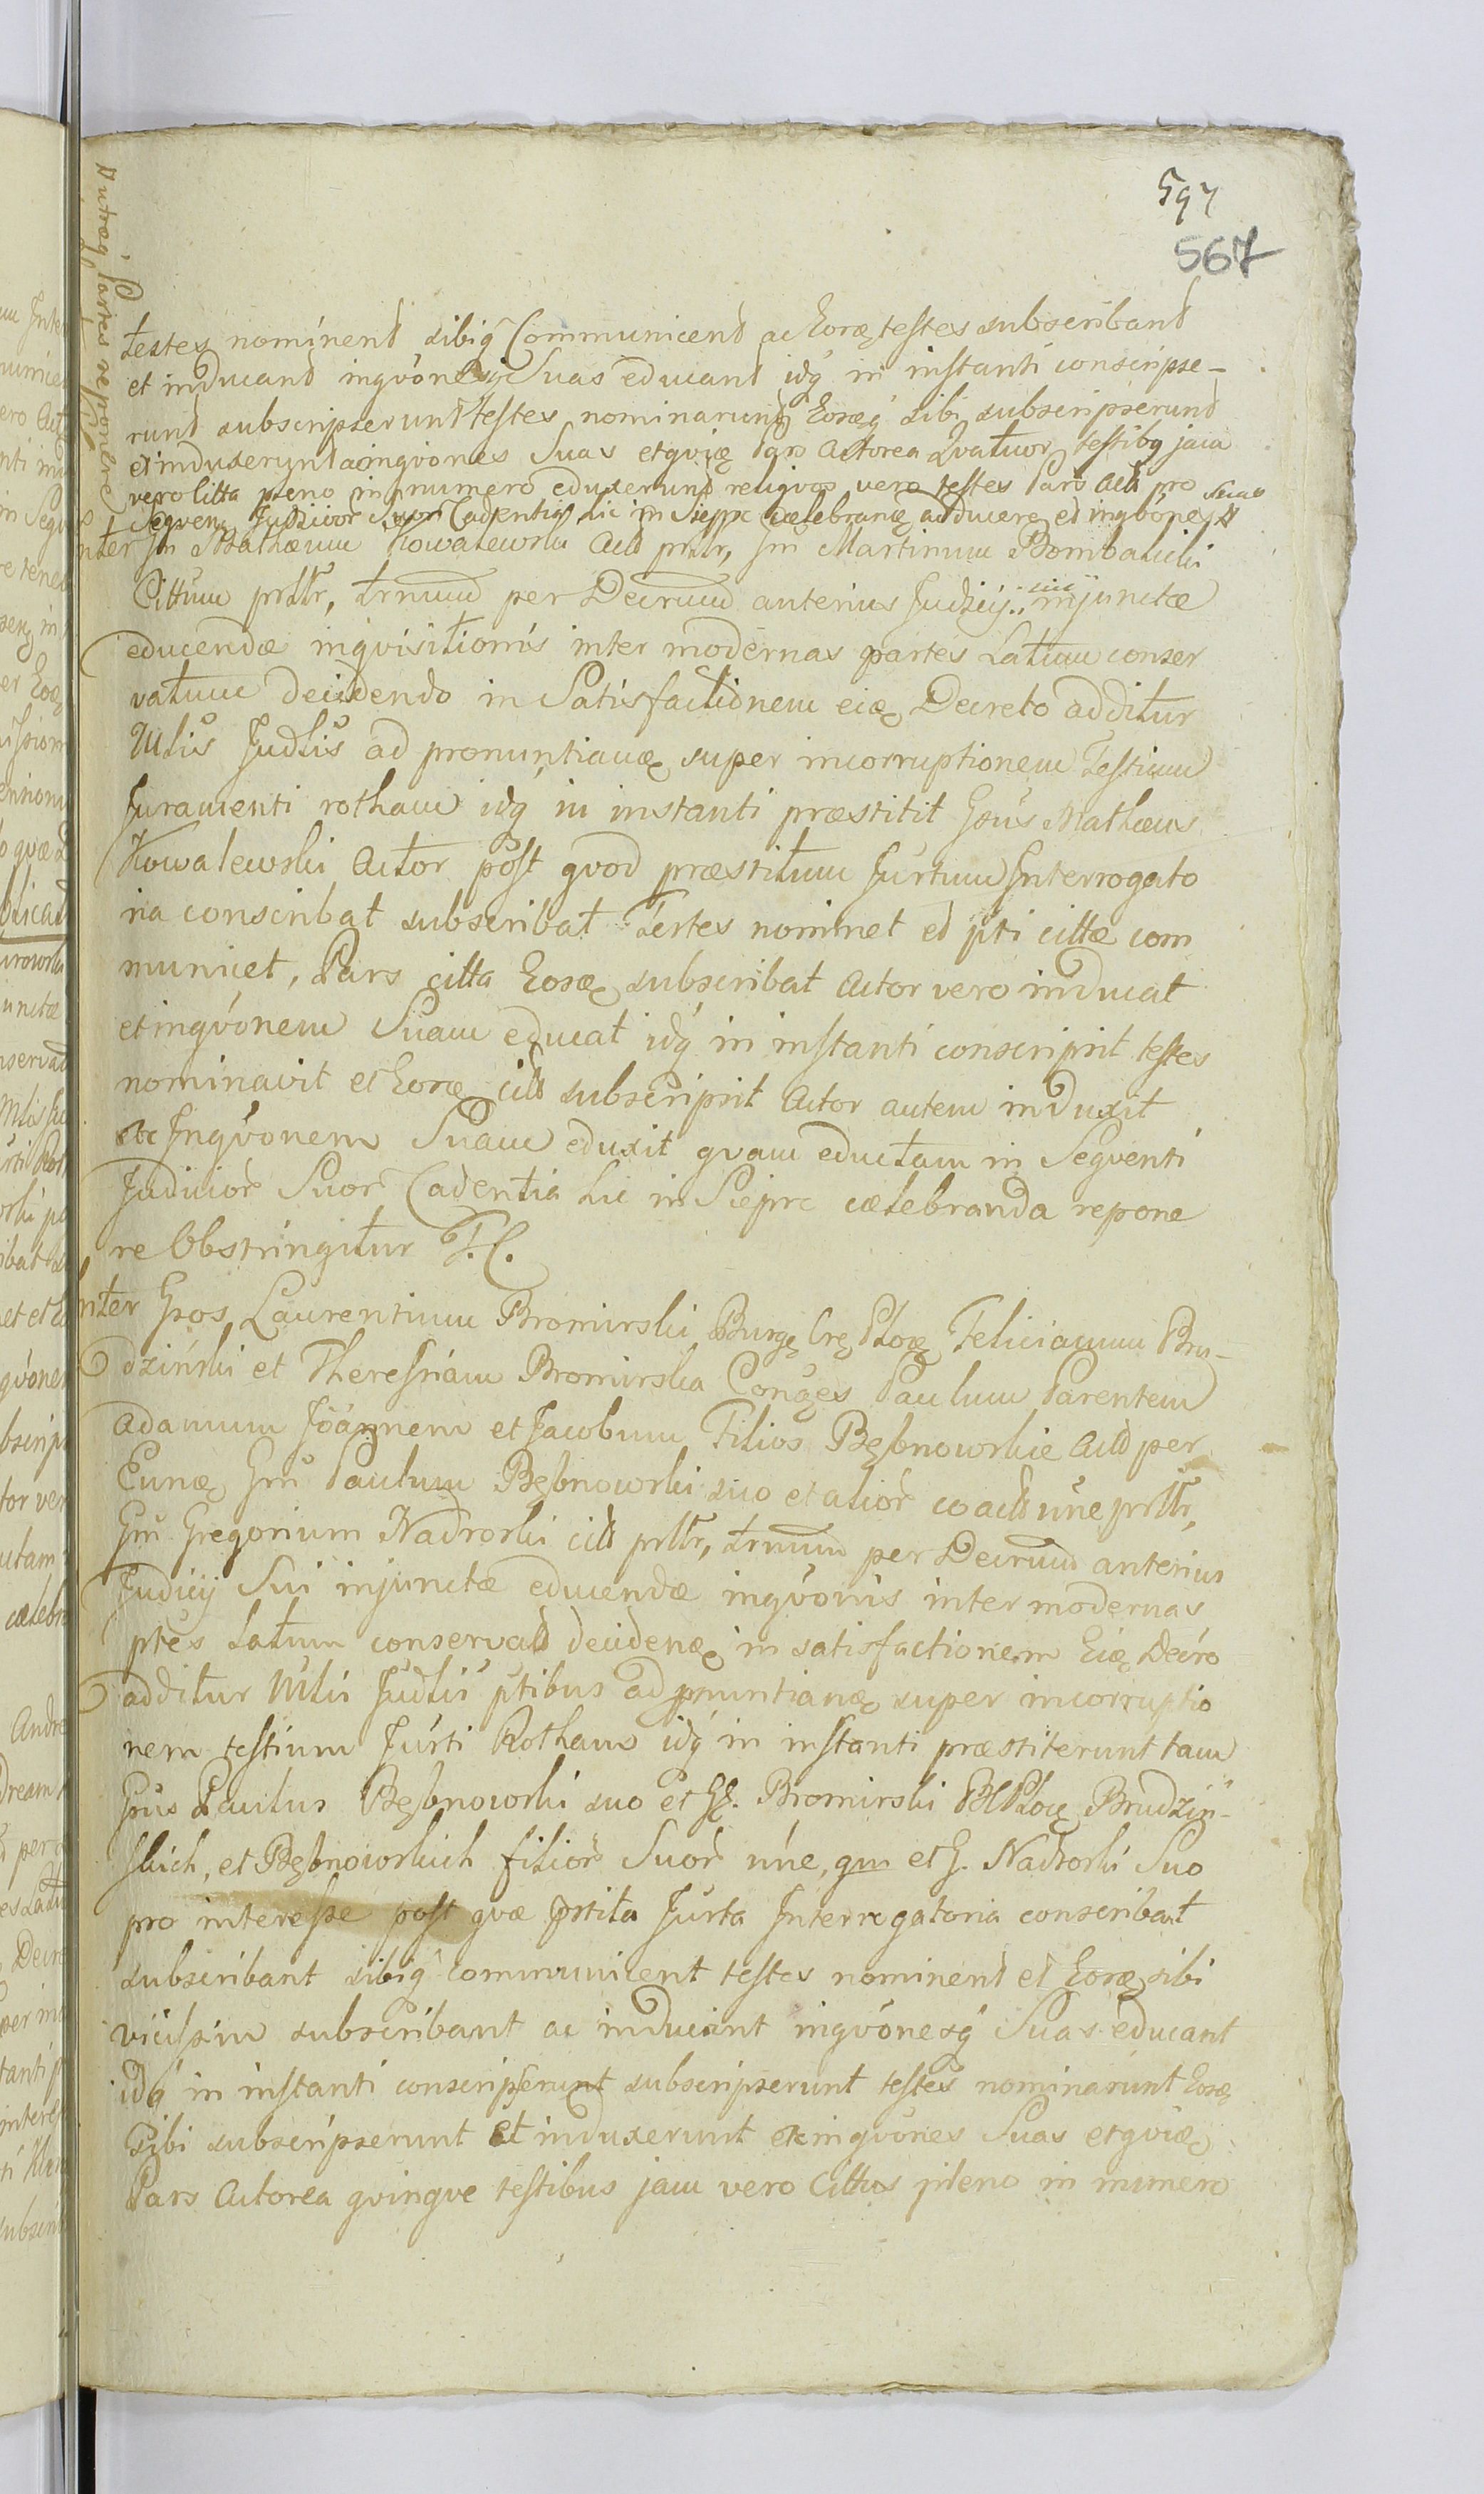 597
567
testes nominent sibiq Communicent ac Eoręq testes subscribant
et inducant inqvonesq Suas educant idq in instanti conscripse-
runt subscripserunt testes nominarunt Eosęq sibi subscripserunt
et induxerunt ac inqvones Suas et qvię Pars Actorea Qvatuor testibq jam
vero Citta pleno in numero eduxerunt reliqvos vero testes Pars Act pro
Seqven Judicior Suor Cadentia hic in Sieprc cœlebranę adducere et inqvones Suas
utraq Partes reponere
Inter Gm Mathæum Kowalewski Act prltr, Gm Martinum Bombalicki
Cittum prltr, trnum per Decrum anterius Judicij sui injunctæ
educendæ inqvisitionis inter modernas partes Latum conser
vatum decidendo in Satisfactionem eię Decreto additur
Mlis Judlis ad pronuntianę super incorruptionem Testium
Juramenti rotham idq in instanti præstitit Gsus Mathæus
Kowalewski Actor post qvod præstitum Jurtum Interrogato
ria conscribat subscribat Testes nominet et pti cittæ com
municet, Pars citta Eosę subscribat Actor vero inducat
et inqvonem Suam educat idq in instanti conscripsit testes
nominavit et Eosę citt subscripsit Actor autem induxit
ac Inqvonem Suam eduxit qvam eductam in Seqventi
Judicior Suor Cadentia hic in Sieprc cœlebranda repone
re Obstringitur T.C.
Inter Gsos Laurentium Bromirski Burgę Crę Plocę Felicianum Bru-
dziński et Theresiam Bromirska Conges Paulum Parentem
Adamum Joannem et Jacobum Filios Bębnowskie Actt per
Eunę Gm Paulum Bębnowski suo et alior coactt nne prltr,
Gm Gregorium Nadroski citt prltr, trnum per Decrum anterius
Judicij Sui injunctæ educendæ inqvonis inter modernas
ptes Latum conservatt decidenę in satisfactionem Eię Decro
additur Mlis Judlis ptibus ad pnuntianę super incorruptio
nem testium Jurti Rotham idq in instanti præstiterunt tam
Gsus Paulus Bębnowski suo et GG. Bromirski BC Plocę Brudziń-
skich, et Bębnowskich filior Suor nne, qm et G. Nadroski Suo
pro interesse post qvæ pstita Jurta Interrogatoria conscribant
subscribant sibiq communicent testes nominent et Eosę sibi
vicissim subscribant ac inducant inqvonesq Suas educant
idq in instanti conscripserunt subscripserunt testes nominarunt Eosę
sibi subscripserunt et induxerunt ac inqvones Suas et qvię
Pars Actorea qvinqve testibus jam vero Cittus pleno in numero